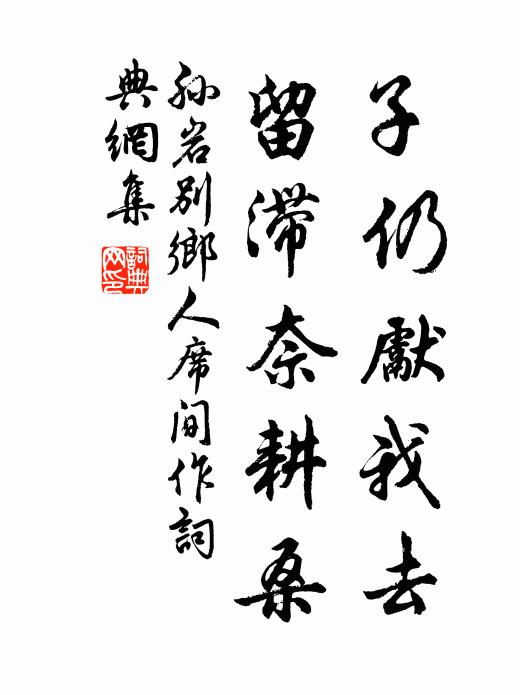 子仍獻我去
留滯奈耕桑
孫岩別鄉人席间作詞
典網集
詞典网印